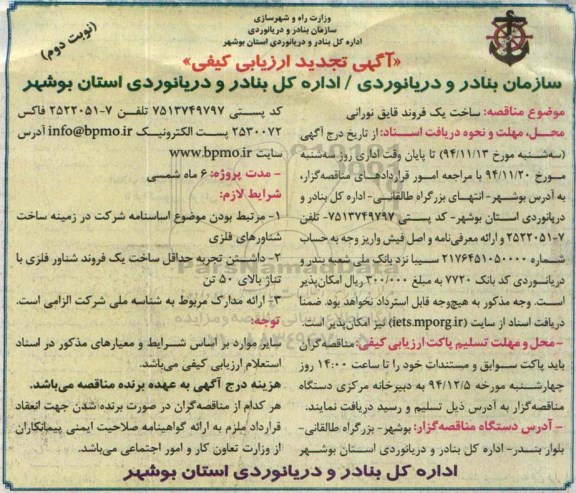 وزارت راه و شهرسازی
سازمان بنادر و دریانوردی
اداره کل بنادر و دریانوردی استان بوشهر
(نوبت دوم)
«آگهی تجدید ارزیابی کیفی»
سازمان بنادر و دریانوردی / اداره کل بنادر و دریانوردی استان بوشهر
موضوع مناقصه: ساخت یک فروند قایق نورانی
محل، مهلت و نحوه دریافت اسناد: از تاریخ درج آگهی
(سه‌شنبه مورخ ۹۴/۱۱/۱۳) تا پایان وقت اداری روز سه‌شنبه
مورخ ۹۴/۱۱/۲۰ با مراجعه امور قراردادهای مناقصه‌گزار،
به آدرس بوشهر- انتهای بزرگراه طالقانی- اداره کل بنادر و
دریانوردی استان بوشهر- کد پستی ۷۵۱۳۷۴۹۷۹۷- تلفن
۷-۲۵۲۲۰۵۱ و ارائه معرفی‌نامه و اصل فیش واریز وجه به حساب
شماره ۲۱۷۶۴۵۱۰۵۰۰۰۰ سیبا نزد بانک ملی شعبه بندر و
دریانوردی کد بانک ۷۷۲۰ به مبلغ ۳۰۰/۰۰۰ ریال امکان‌پذیر
است. وجه مذکور به هیچ‌وجه قابل استرداد نخواهد بود. ضمنا
دریافت اسناد از سایت (iets.mporg.ir) نیز امکان‌پذیر است.
- محل و مهلت تسلیم پاکت ارزیابی کیفی: مناقصه‌گران
باید پاکت سوابق و مستندات خود را تا ساعت ۱۴:۰۰ روز
چهارشنبه مورخه ۹۴/۱۲/۵ به دبیرخانه مرکزی دستگاه
مناقصه‌گزار به آدرس ذیل تسلیم و رسید دریافت نمایند.
- آدرس دستگاه مناقصه‌گزار: بوشهر- بزرگراه طالقانی-
بلوار بندر- اداره کل بنادر و دریانوردی استان بوشهر
کد پستی ۷۵۱۳۷۴۹۷۹۷ تلفن ۷-۲۵۲۲۰۵۱ فاکس
۲۵۳۰۰۷۲ پست الکترونیک info@bpmo.ir آدرس
سایت www.bpmo.ir
- مدت پروژه: ۶ ماه شمسی
شرایط لازم:
۱- مرتبط بودن موضوع اساسنامه شرکت در زمینه ساخت
شناورهای فلزی
۲- داشتن تجربه حداقل ساخت یک فروند شناور فلزی با
تناژ بالای ۵۰ تن
۳- ارائه مدارک مربوط به شناسه ملی شرکت الزامی است.
توجه:
سایر موارد بر اساس شرایط و معیارهای مذکور در اسناد
استعلام ارزیابی کیفی می‌باشد.
هزینه درج آگهی به عهده برنده مناقصه می‌باشد.
هر کدام از مناقصه‌گران در صورت برنده شدن جهت انعقاد
قرارداد ملزم به ارائه گواهینامه صلاحیت ایمنی پیمانکاران
از وزارت تعاون کار و امور اجتماعی می‌باشد.
اداره کل بنادر و دریانوردی استان بوشهر
ParsNamadData